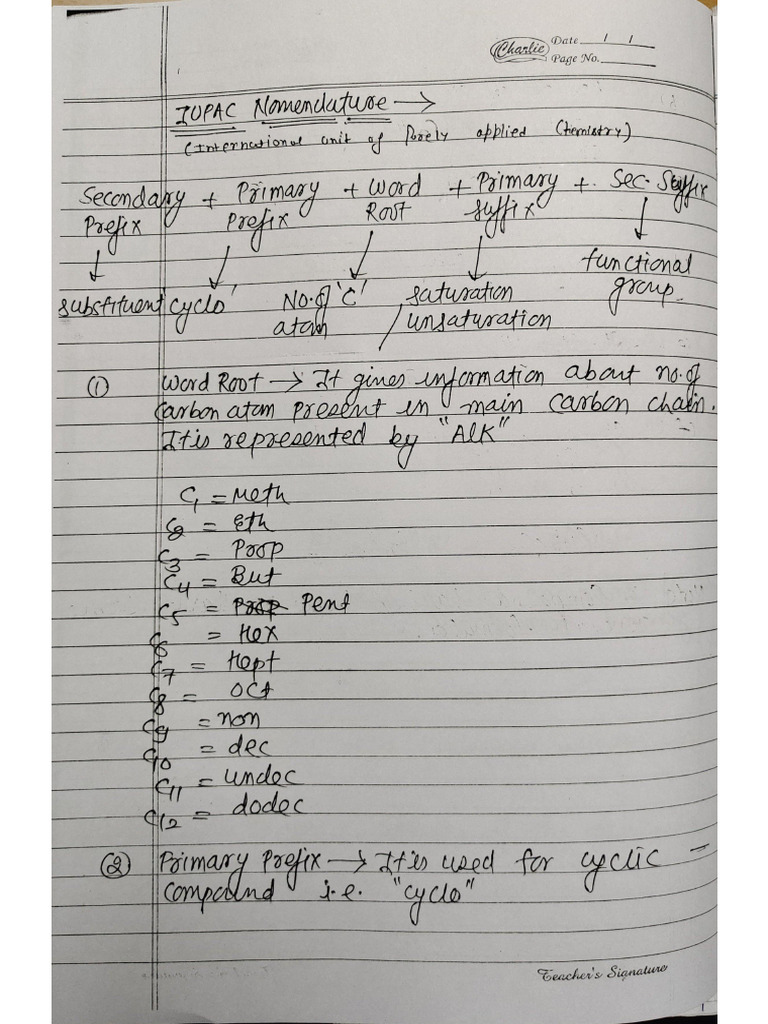 Charlie Date / /
Page No.
IUPAC Nomenclature →
(International unit of Purely applied Chemistry)
Secondary Prefix + Primary Prefix + Word Root + Primary Suffix + Sec. Suffix
↓ ↓ ↓ ↓ ↓
substituent 'cyclo' No. of 'C' atom saturation / unsaturation functional group
① Word Root → It gives information about no. of
carbon atom present in main carbon chain.
It is represented by "Alk"
C1 = Meth
C2 = Eth
C3 = Prop
C4 = But
C5 = Pent
C6 = Hex
C7 = Hept
C8 = Oct
C9 = non
C10 = dec
C11 = undec
C12 = dodec
② Primary Prefix → It is used for cyclic
compound i.e. "cyclo"
Teacher's Signature